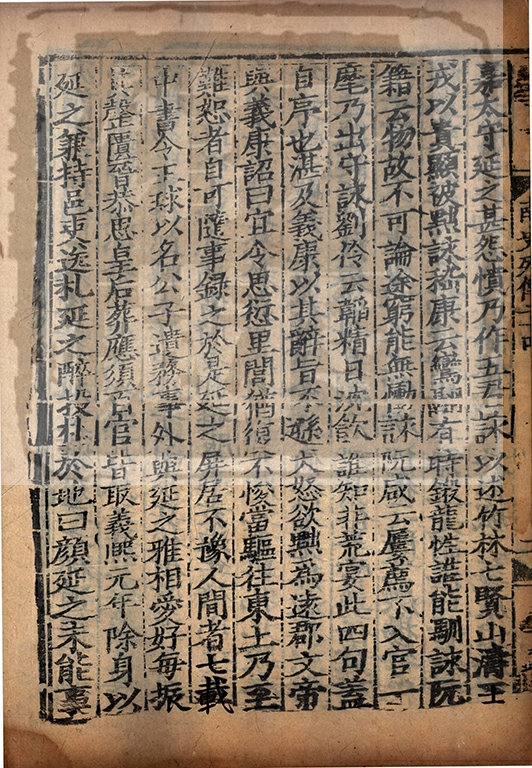 嘉太守延之甚怨憤乃作五君詠以述竹林七賢山濤王
戎以貴顯被黜詠嵇康云鸞翮有時鎩龍性誰能馴詠阮
籍云物故不可論途窮能無慟詠阮咸云屢薦不入官一
麾乃出守詠劉伶云韜精日沈飲誰知非荒宴此四句蓋
自序也湛及義康以其辭旨不遜大怒欲黜為遠郡文帝
與義康詔曰宜令思愆里閭猶復不悛當驅往東土乃至
難恕者自可隨事錄之於是延之屏居不豫人間者七載
中書令王球以名公子遺務事外與延之雅相愛好每振
其罄匱晉恭思皇后葬應須百官皆取義熙元年除身以
延之兼持邑吏送札延之醉投札於地曰顏延之未能事